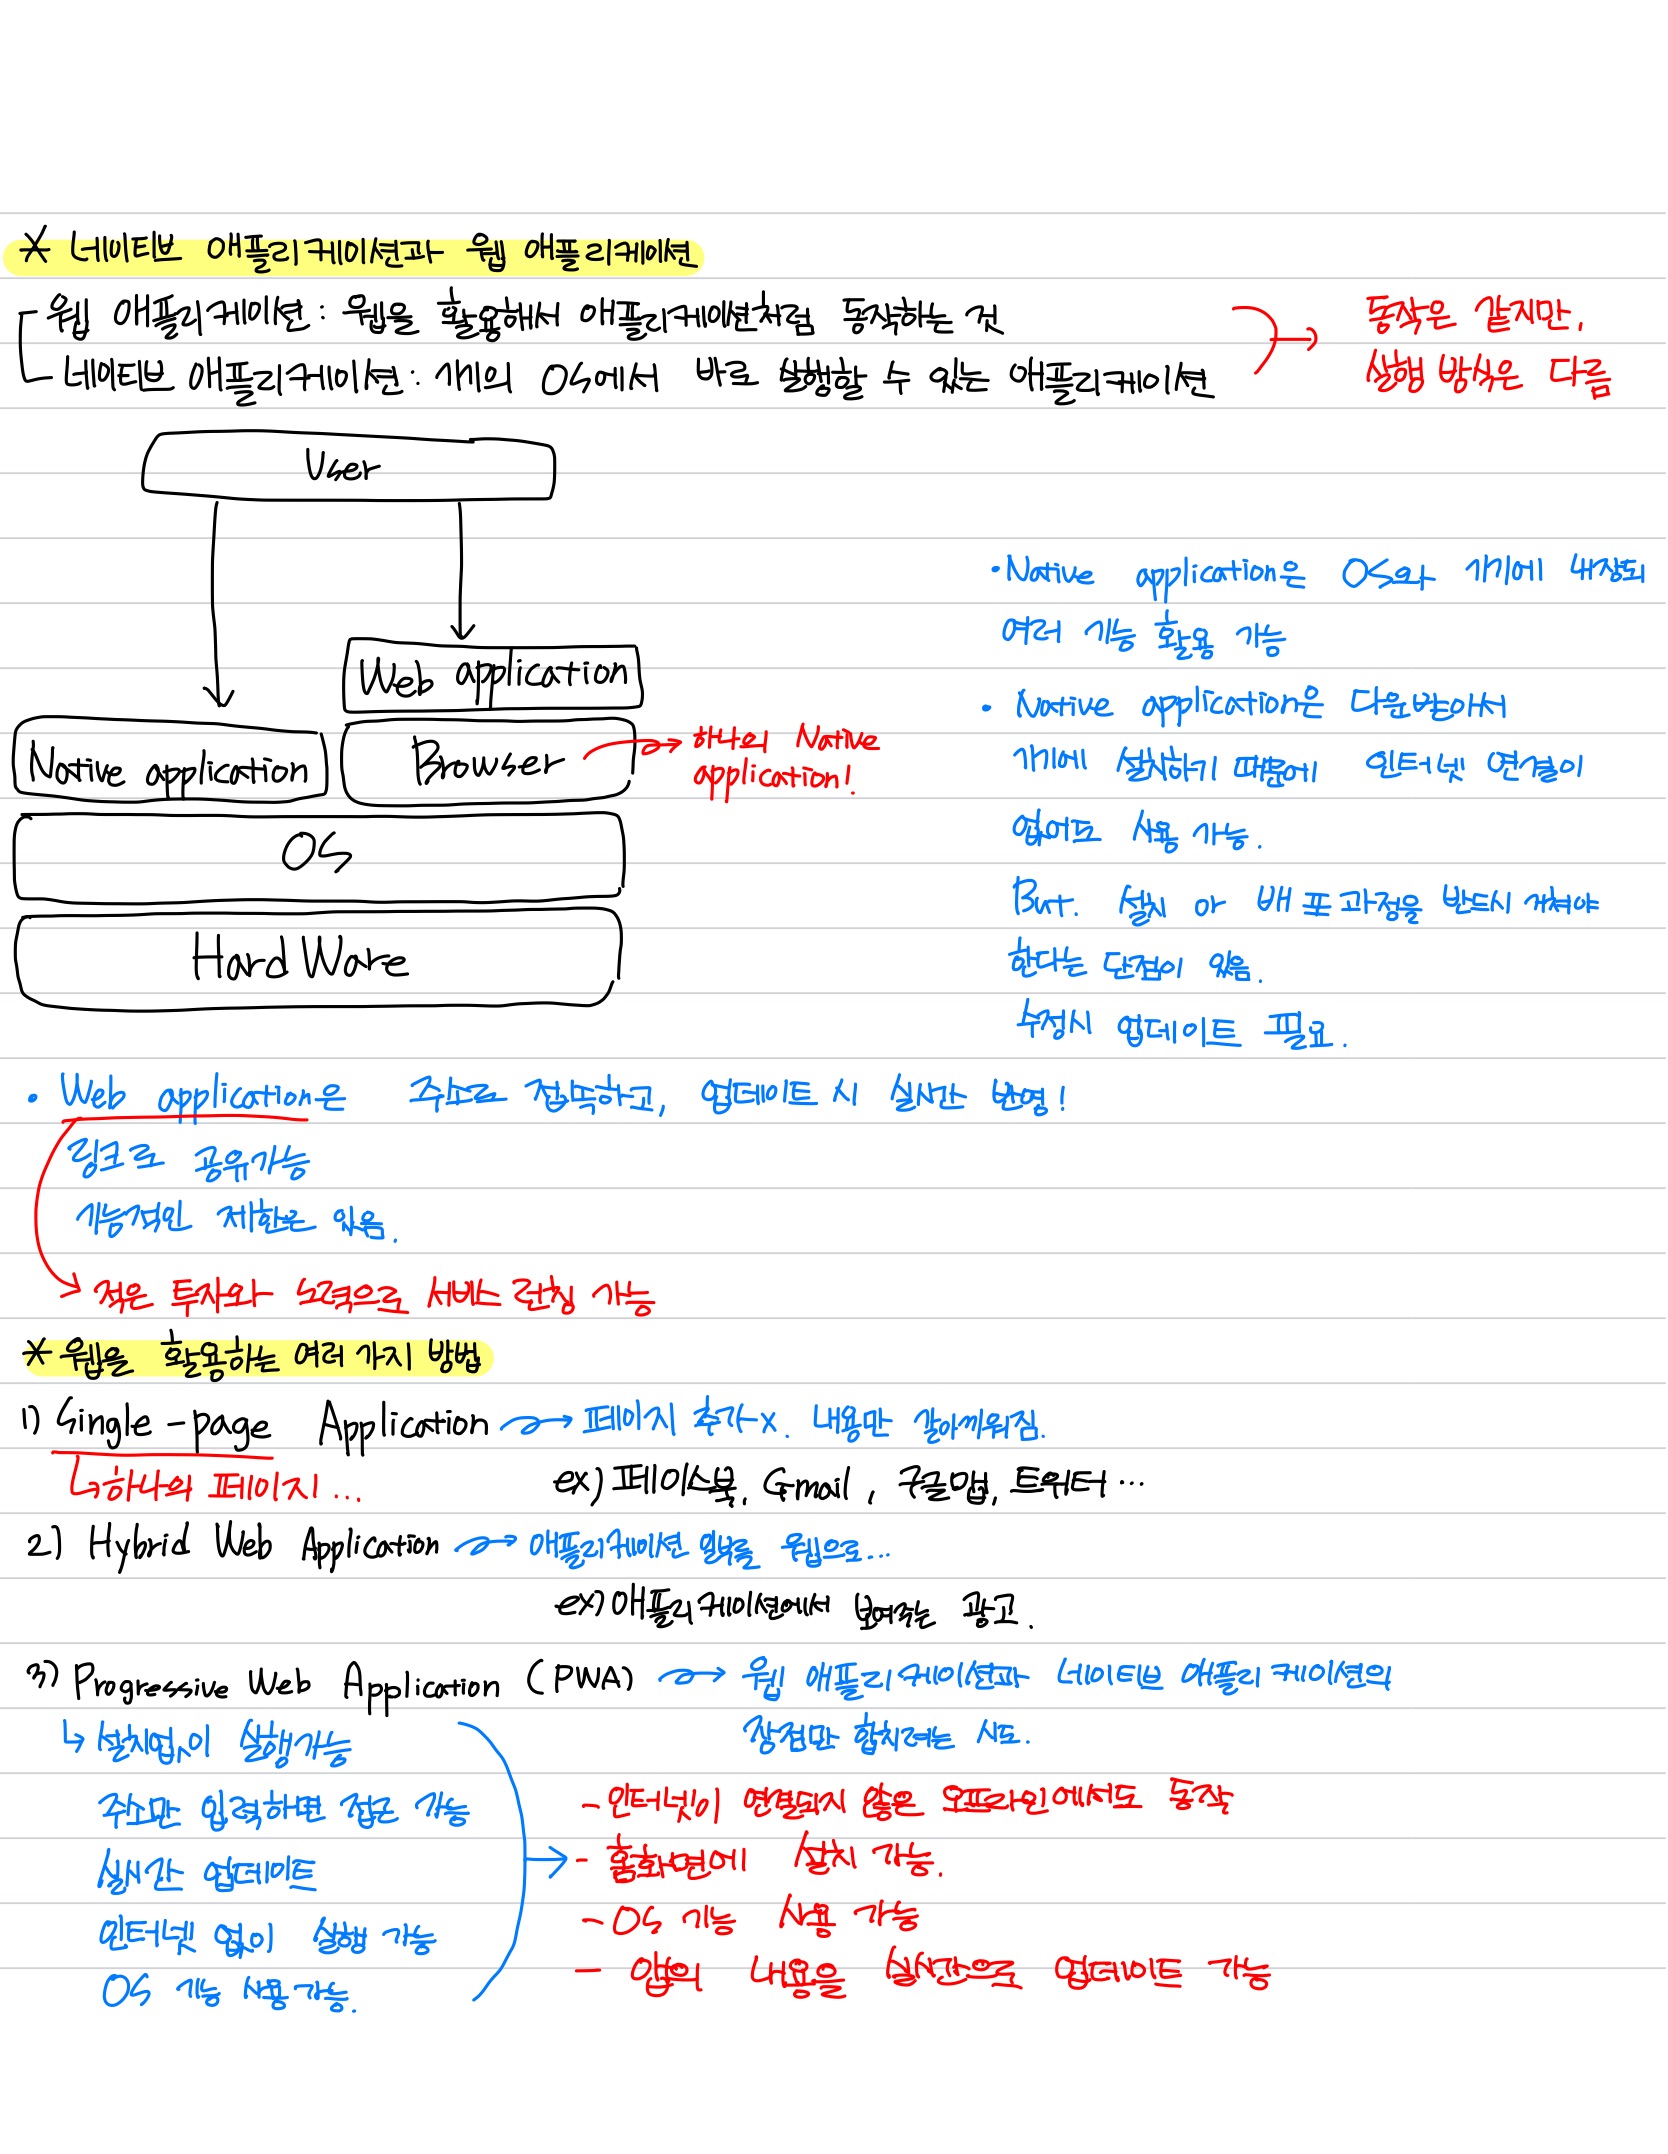 * 네이티브 애플리케이션과 웹 애플리케이션
웹 애플리케이션 : 웹을 활용해서 애플리케이션처럼 동작하는 것
네이티브 애플리케이션 : 개의 OS에서 바로 실행할 수 있는 애플리케이션
동작은 같지만,
실행 방식은 다름
User
Web application
Native application
Browser
하나의 Native
application!
OS
Hard Ware
• Native application은 OS와 기기에 내장되
여러 기능 활용 가능
• Native application은 다운받아서
기기에 설치하기 때문에 인터넷 연결이
없어도 사용 가능.
But. 설치 아 배포과정을 반드시 거쳐야
한다는 단점이 있음.
수정시 업데이트 필요.
• Web application은 주소로 접속하고, 업데이트 시 실시간 반영!
링크로 공유가능
기능적인 제한은 있음.
적은 투자와 노력으로 서비스 런칭 가능
* 웹을 활용하는 여러 가지 방법
1) Single-page Application → 페이지 추가x. 내용만 갈아끼워짐.
하나의 페이지...
ex) 페이스북, Gmail, 구글맵, 트위터...
2) Hybrid Web Application → 애플리케이션 일부를 웹으로...
ex) 애플리케이션에서 보여주는 광고.
3) Progressive Web Application (PWA) → 웹 애플리케이션과 네이티브 애플리케이션의
장점만 합치려는 시도.
설치없이 실행가능
주소만 입력하면 접근 가능
실시간 업데이트
인터넷 없이 실행 가능
OS 기능 사용가능.
- 인터넷이 연결되지 않은 오프라인에서도 동작
- 홈화면에 설치 가능.
- OS 기능 사용 가능
- 앱의 내용을 실시간으로 업데이트 가능